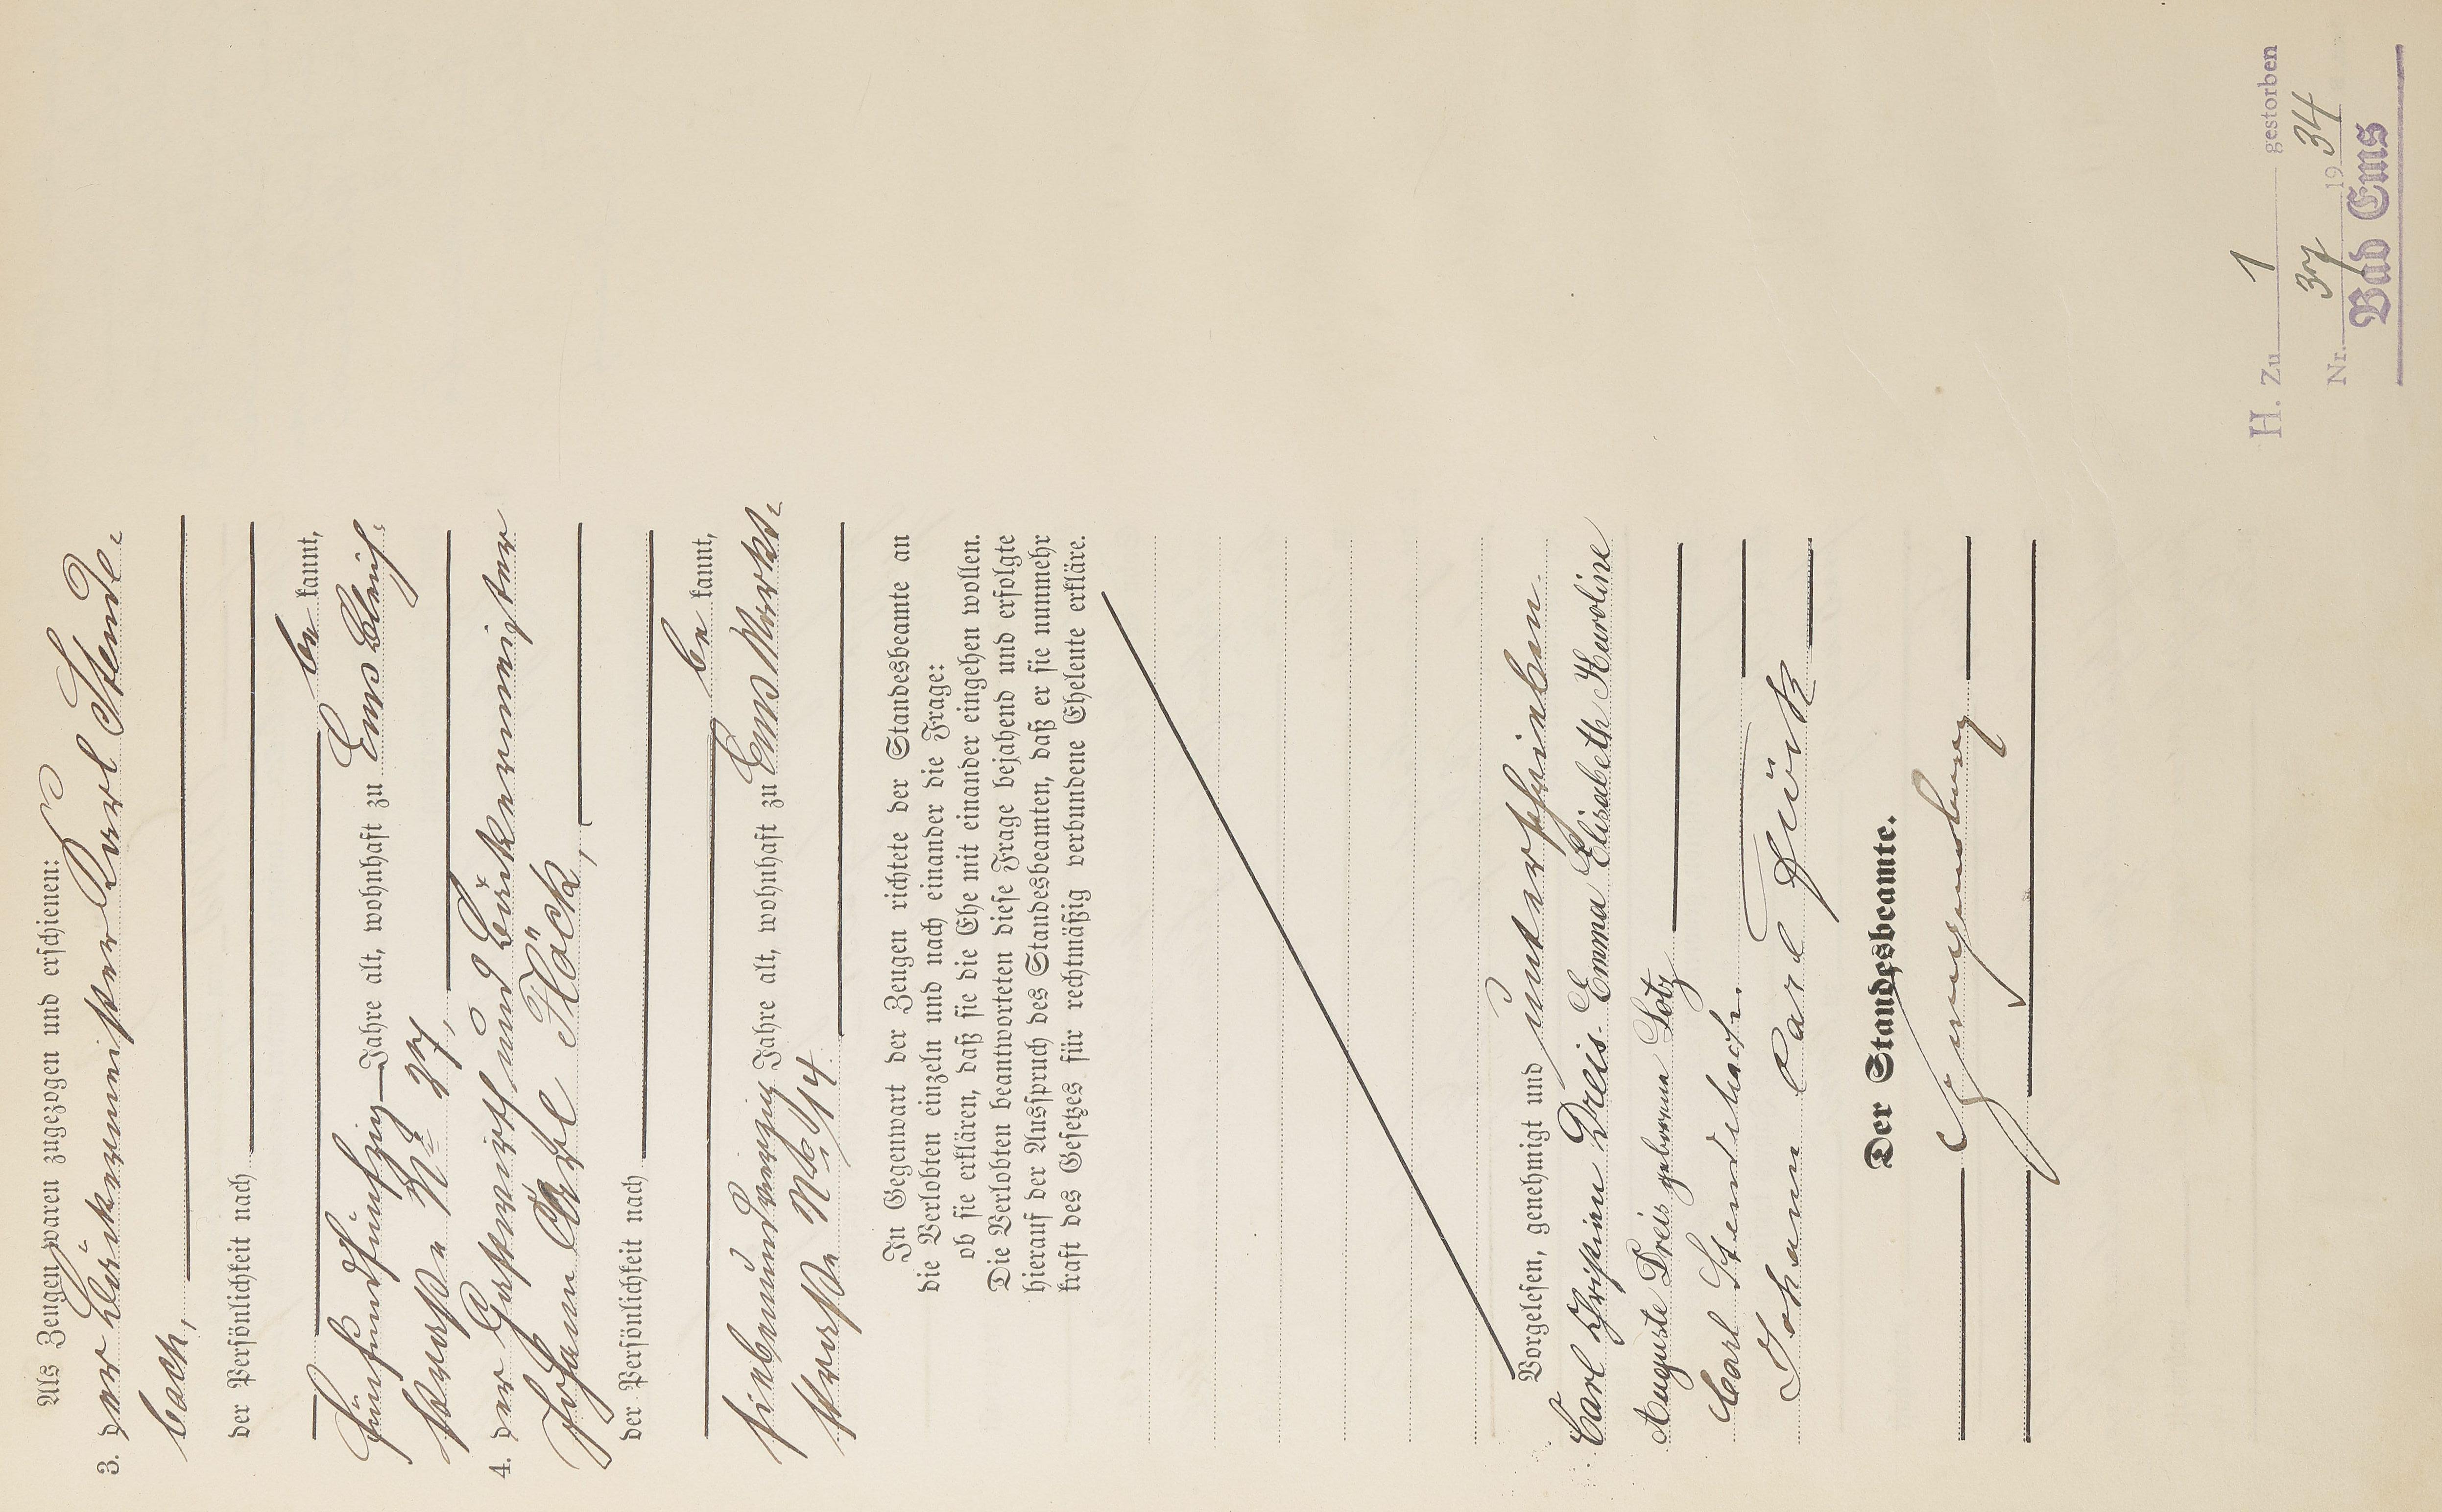 Als Zeugen waren zugezogen und erschienen:
3. der Bäckermeister Karl Stende-
bach,
der Persönlichkeit nach
be kannt,
fünfundfünfzig Jahre alt, wohnhaft zu Ems Bleich-
straße No 27,
4. der Gastwirth und Bäckermeister
Johann Karl Flöck,
der Persönlichkeit nach
be kannt,
siebenundvierzig Jahre alt, wohnhaft zu Ems Markt-
straße No 14.
In Gegenwart der Zeugen richtete der Standesbeamte an
die Verlobten einzeln und nach einander die Frage:
ob sie erklären, daß sie die Ehe mit einander eingehen wollen.
Die Verlobten beantworteten diese Frage bejahend und erfolgte
hierauf der Ausspruch des Standesbeamten, daß er sie nunmehr
kraft des Gesetzes für rechtmäßig verbundene Eheleute erkläre.
Vorgelesen, genehmigt und unterschrieben
Carl Christian Dreis. Emma Elisabeth Karoline
Auguste Dreis geborene Lotz
Carl Stendebach.
Johann Carl Flöck
Der Standesbeamte.
H. Zu 1 gestorben
Nr. 37 1934
Bad Ems